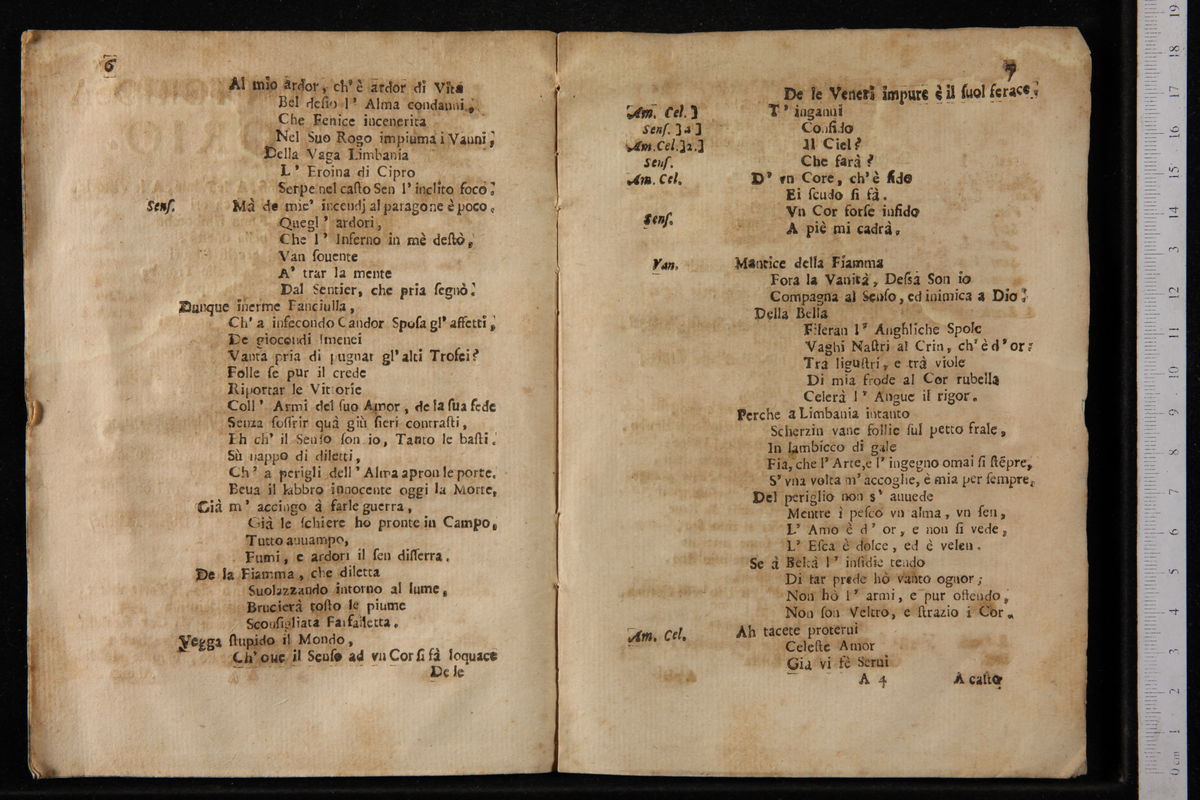 6
Al mio ardor, ch'è ardor di Vita
Bel desio l' Alma condanni,
Che Fenice incenerita
Nel Suo Rogo impiuma i Vanni;
Della Vaga Limbania
L' Eroina di Cipro
Serpe nel casto Sen l' inclito foco:
Sens. Mà de mie' incendj al paragone è poco.
Quegl' ardori,
Che l' Inferno in mè destò,
Van souente
A' trar la mente
Dal Sentier, che pria segnò:
Dunque inerme Fanciulla,
Ch' a infecondo Candor Sposa gl' affetti,
De giocondi Imenei
Vanta pria di pugnar gl' alti Trofei?
Folle se pur il crede
Riportar le Vittorie
Coll' Armi del suo Amor, de la sua fede
Senza soffrir quà giù fieri contrasti,
Eh ch' il Senso son io, Tanto le basti.
Sù nappo di diletti,
Ch' a perigli dell' Alma apron le porte.
Beua il labbro innocente oggi la Morte,
Già m' accingo à farle guerra,
Già le schiere ho pronte in Campo,
Tutto auuampo,
Fumi, e ardori il sen disserra.
De la Fiamma, che diletta
Suolazzando intorno al lume,
Brucierà tosto le piume
Sconsigliata Farfalletta.
Vegga stupido il Mondo,
Ch' oue il Senso ad vn Cor si fà loquace
De le
7
De le Veneri impure è il suol ferace.
Am. Cel. ] T' inganni
Sens. ] a ] Confido
Am. Cel. ] 2. ] Il Ciel?
Sens. Che farà?
Am. Cel. D' vn Core, ch' è fido
Ei scudo si fà.
Sens. Vn Cor forse infido
A piè mi cadrà.
Van. Mantice della Fiamma
Fora la Vanità, Dessa Son io
Compagna al Senso, ed inimica a Dio:
Della Bella
Fileran l' Angliche Spole
Vaghi Nastri al Crin, ch' è d' or:
Tra ligustri, e trà viole
Di mia frode al Cor rubella
Celerà l' Angue il rigor.
Perche a Limbania intanto
Scherzin vane follie sul petto frale,
In lambicco di gale
Fia, che l' Arte, e l' ingegno omai si stẽpre,
S' vna volta m' accoglie, è mia per sempre,
Del periglio non s' auuede
Mentre i pesco vn alma, vn sen,
L' Amo è d' or, e non si vede,
L' Esca è dolce, ed è velen.
Se à Beltà l' insidie tendo
Di far prede hò vanto ognor;
Non hò l' armi, e pur offendo,
Non son Veltro, e strazio i Cor.
Am. Cel. Ah tacete proterui
Celeste Amor
Già vi fè Serui
A 4 A casto